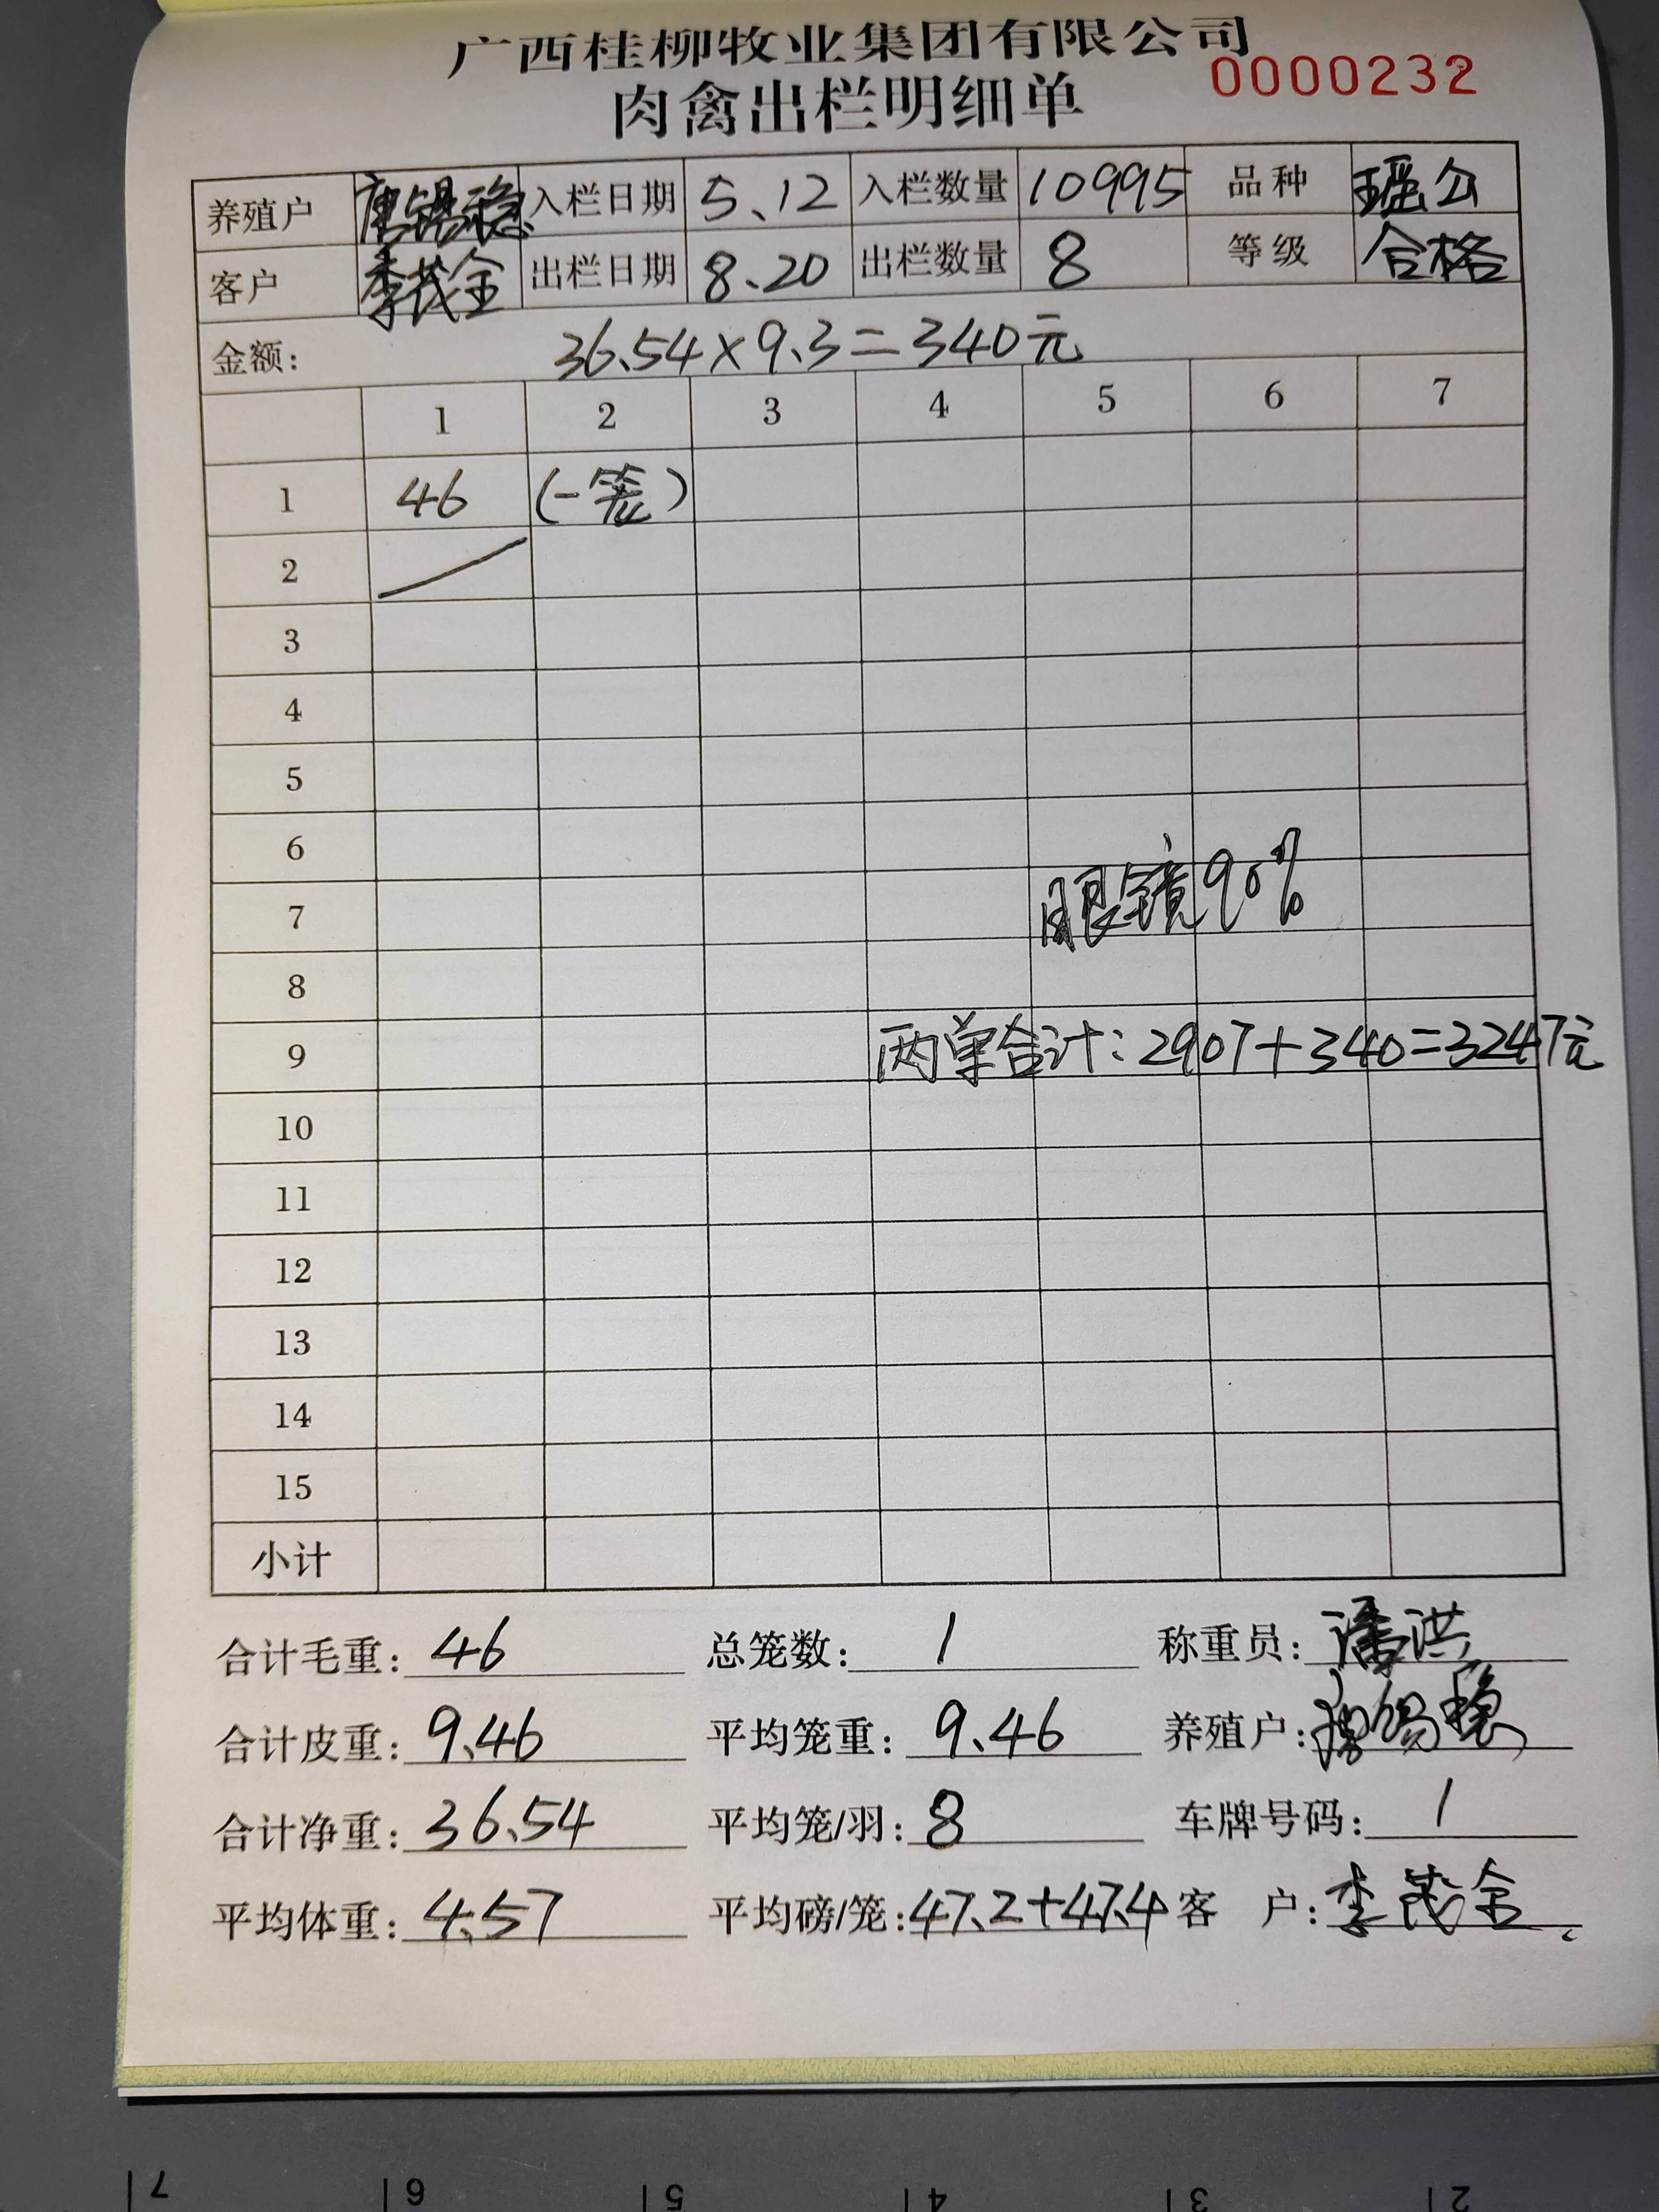 广西桂柳牧业集团有限公司
0000232
肉禽出栏明细单
养殖户 唐锡稳 入栏日期 5.12 入栏数量 10995 品种 瑶公
客户 李茂全 出栏日期 8.20 出栏数量 8 等级 合格
金额: 36.54×9.3=340元
1 2 3 4 5 6 7
1 46 (一笼)
2
3
4
5
6
7 眼镜90%
8
9 两单合计:2907+340=3247元
10
11
12
13
14
15
小计
合计毛重: 46 总笼数: 1 称重员: 潘洪
合计皮重: 9.46 平均笼重: 9.46 养殖户: 唐锡稳
合计净重: 36.54 平均笼/羽: 8 车牌号码: 1
平均体重: 4.57 平均磅/笼: 47.2+47.4 客 户: 李茂全
7 6 5 4 3 2